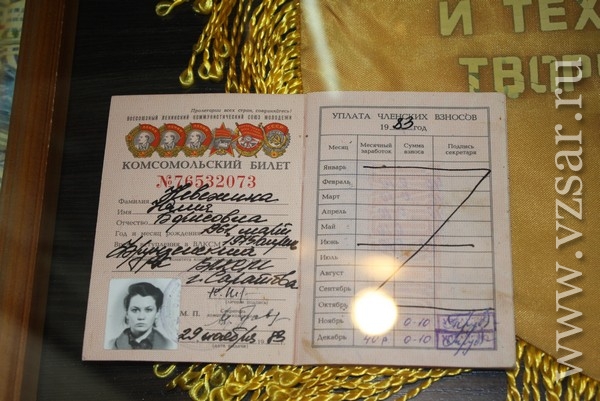 И ТЕХ
ТВОР
Пролетарии всех стран, соединяйтесь!
ВСЕСОЮЗНЫЙ ЛЕНИНСКИЙ КОММУНИСТИЧЕСКИЙ СОЮЗ МОЛОДЕЖИ
КОМСОМОЛЬСКИЙ БИЛЕТ
№76532073
Фамилия
Имя
Отчество Борисовна
Год и месяц рождения 1961, март
Время вступления в ВЛКСМ
ВЛКСМ
г. Саратова
М. П.
29 ноября 1983
УПЛАТА ЧЛЕНСКИХ ВЗНОСОВ
1983 год
Месяц Месячный заработок Сумма взноса Подпись секретаря
Январь
Февраль
Март
Апрель
Май
Июнь
Июль
Август
Сентябрь
Октябрь
Ноябрь 0-10
Декабрь 40 р 0-10
www.vzsar.ru